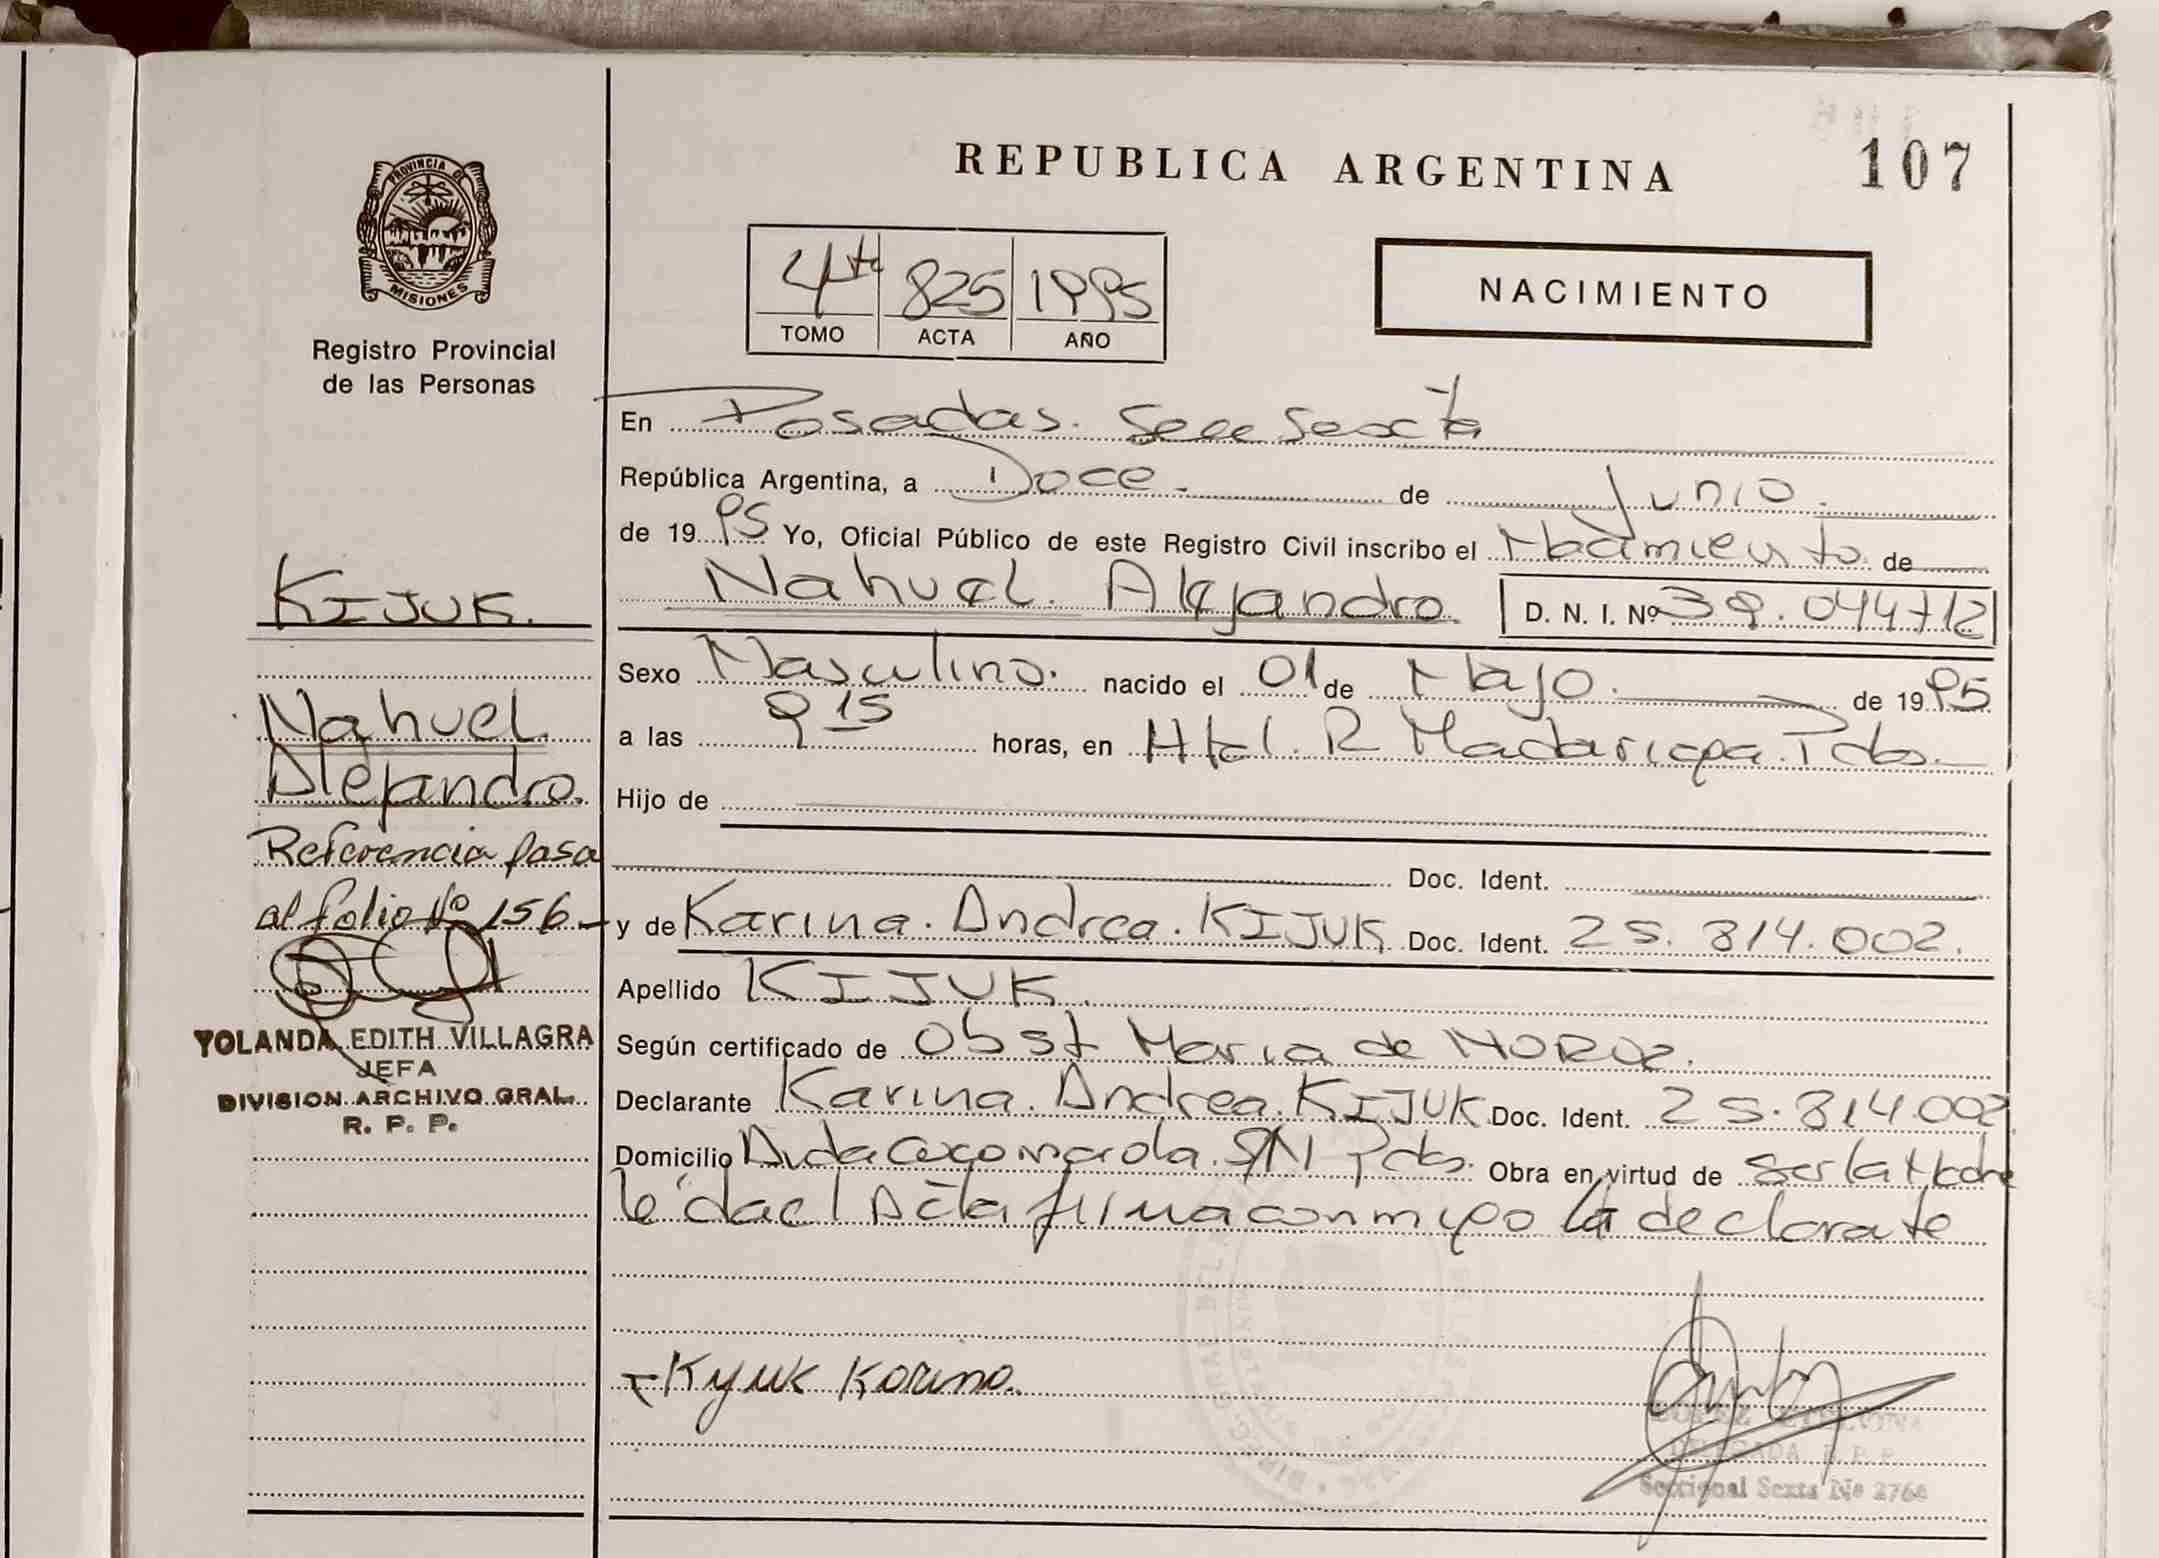 REPUBLICA ARGENTINA
107
PROVINCIA DE
MISIONES
Registro Provincial
de las Personas
4to 825 1995
TOMO ACTA AÑO
NACIMIENTO
En Posadas. Secc Sexta
República Argentina, a Doce. de Junio.
de 1995 Yo, Oficial Público de este Registro Civil inscribo el Nacimiento de
Nahuel. Alejandro D. N. I. Nº 39.044712
Sexo Masculino. nacido el 01 de Mayo. de 1995
a las 9 15 horas, en Htal. R Madariaga. Pdas.
Hijo de
Doc. Ident.
y de Karina. Andrea. KIJUK Doc. Ident. 25.814.002.
Apellido KIJUK.
Según certificado de Obst Maria de
Declarante Karina. Andrea. KIJUK Doc. Ident. 25.814.002
Domicilio Avda Cocomarola. S/N Pdas. Obra en virtud de ser la Madre
leída el Acta firma conmigo la declarate
KIJUK.
Nahuel.
Alejandro.
Referencia pasa
al folio Nº 156.-
YOLANDA EDITH VILLAGRA
JEFA
DIVISION ARCHIVO GRAL.
R. P. P.
Kyuk Karina.
DELEGADA R.P.P.
Seccional Sexta Nº 2764